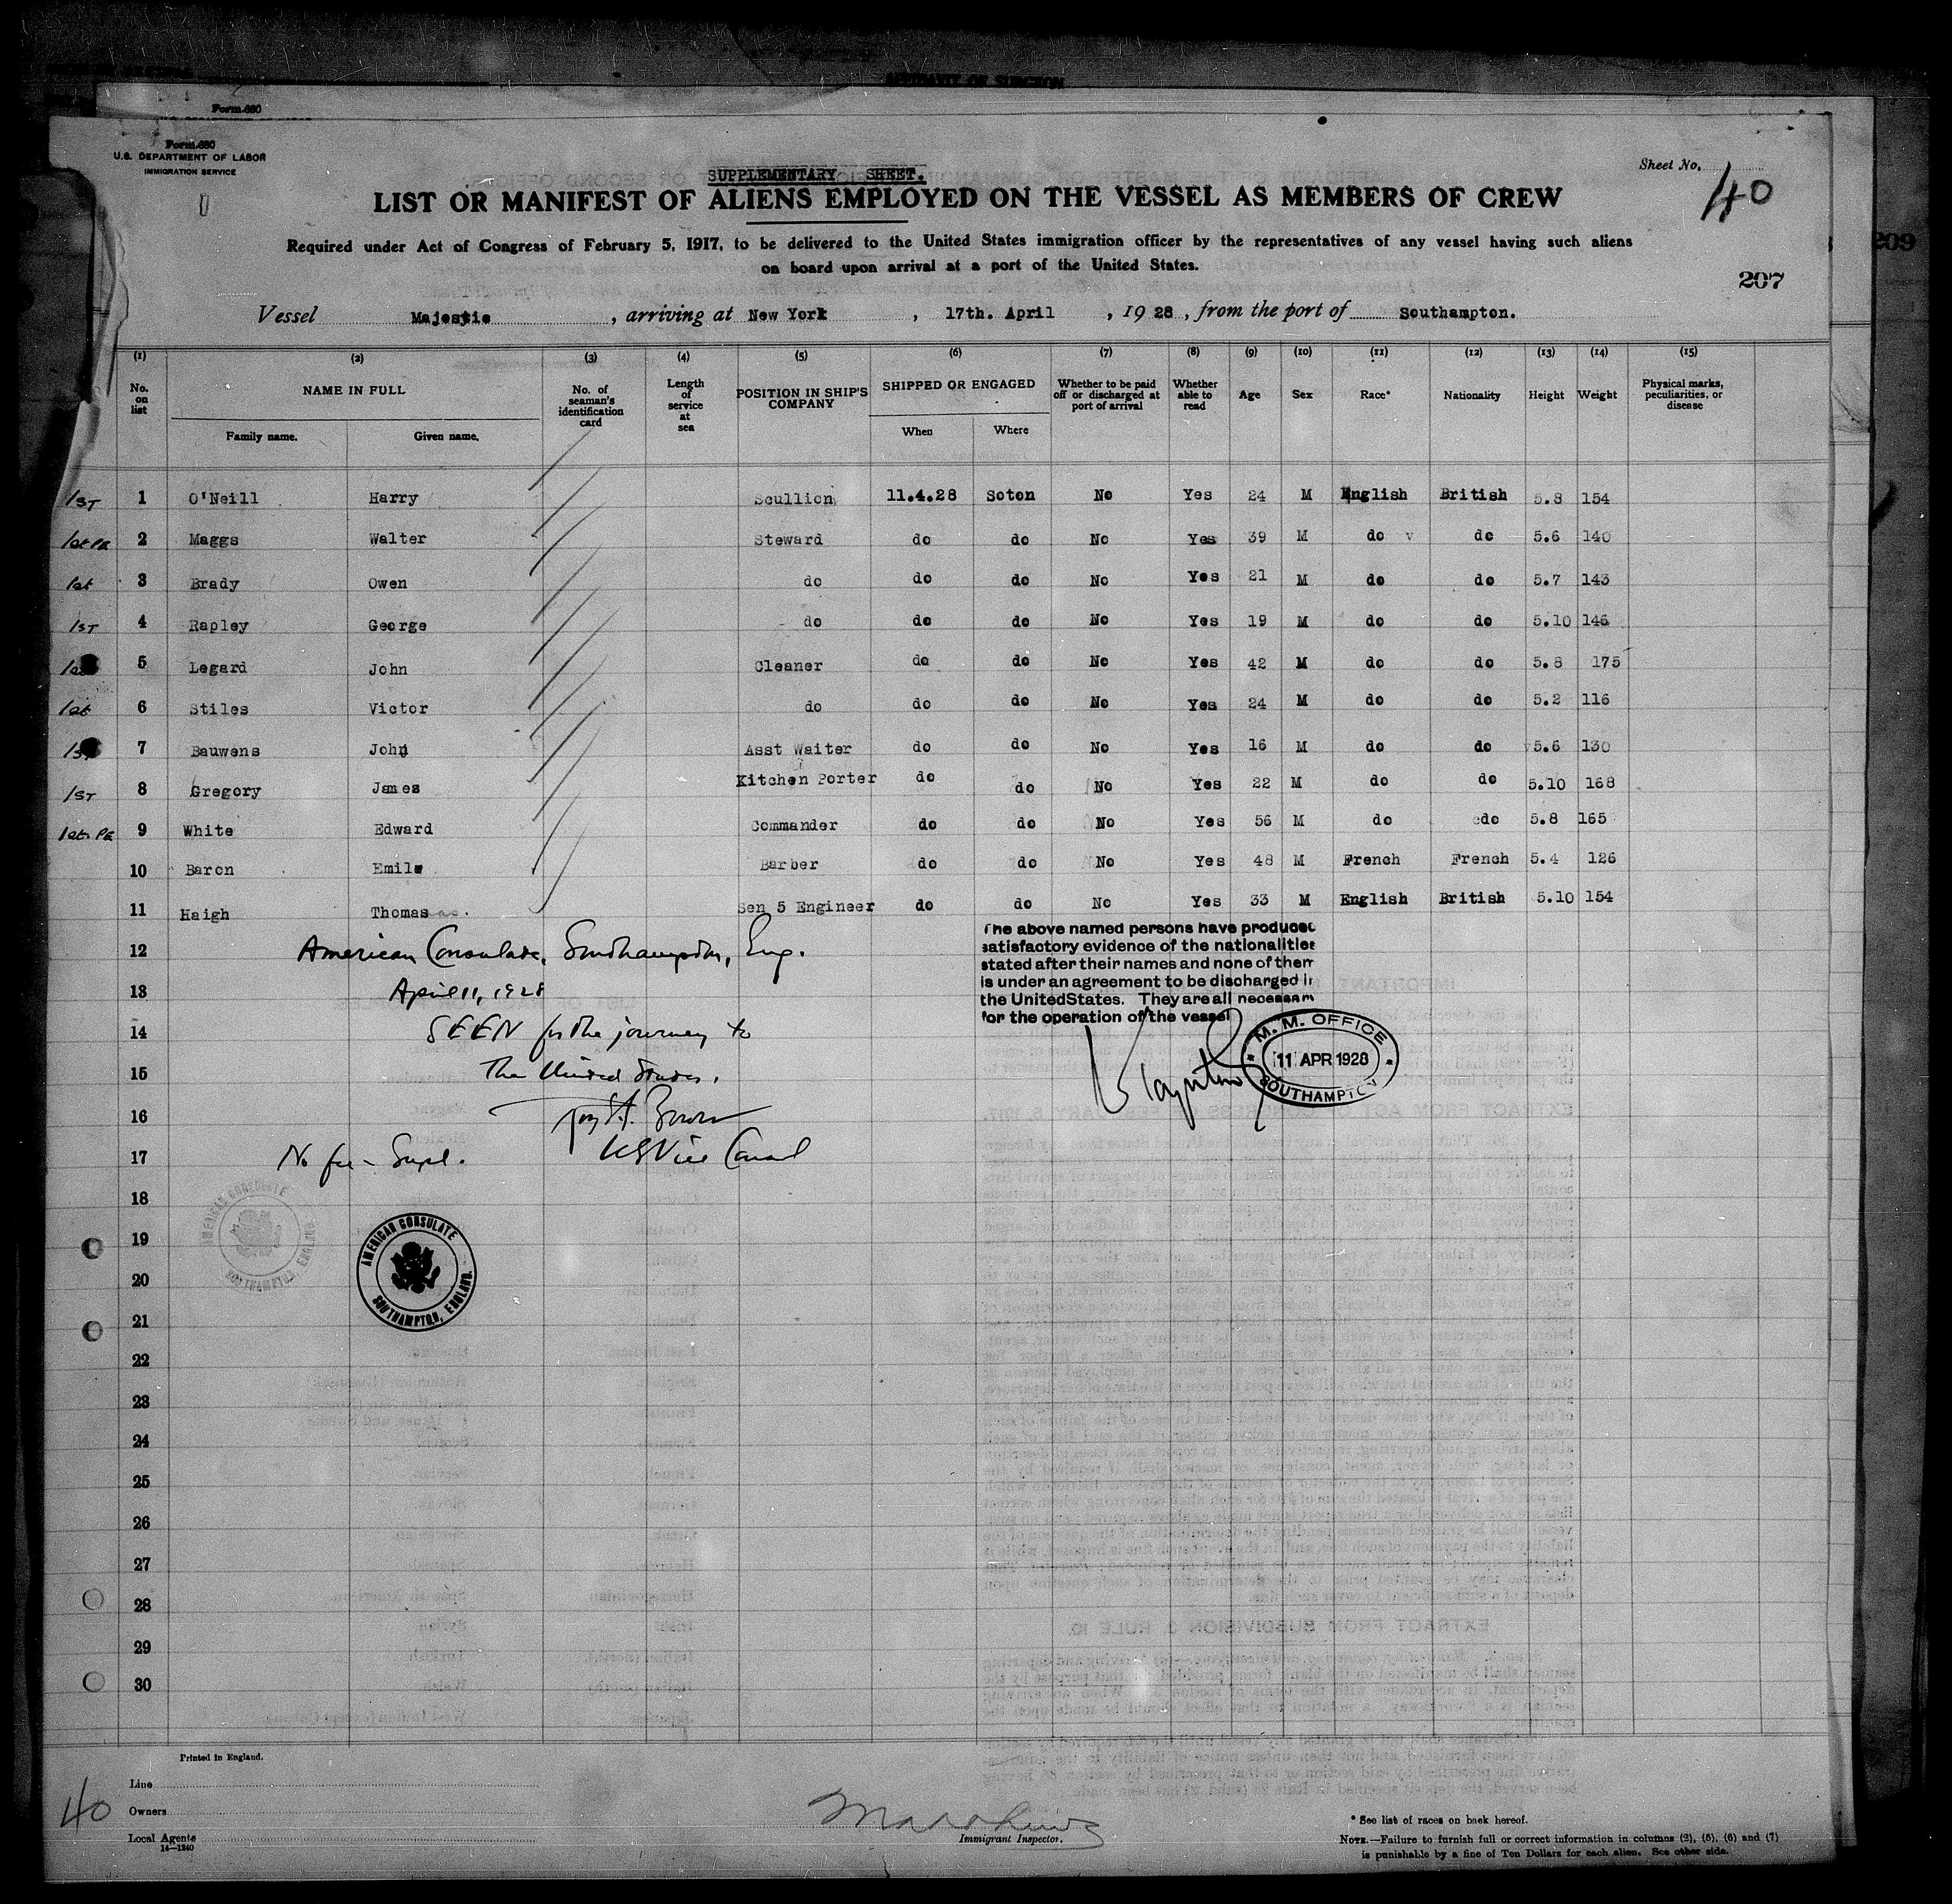 AFFIDAVIT OF SURGEON
Form 680
Form 680
U.S. DEPARTMENT OF LABOR
IMMIGRATION SERVICE
Sheet No. 40
SUPPLEMENTARY SHEET.
LIST OR MANIFEST OF ALIENS EMPLOYED ON THE VESSEL AS MEMBERS OF CREW
Required under Act of Congress of February 5, 1917, to be delivered to the United States immigration officer by the representatives of any vessel having such aliens
on board upon arrival at a port of the United States.
209
207
Vessel Majestic, arriving at New York, 17th. April, 1928, from the port of Southampton.
(1) (2) (3) (4) (5) (6) (7) (8) (9) (10) (11) (12) (13) (14) (15)
No. on list NAME IN FULL Family name. Given name. No. of seaman's identification card Length of service at sea POSITION IN SHIP'S COMPANY SHIPPED OR ENGAGED When Where Whether to be paid off or discharged at port of arrival Whether able to read Age Sex Race* Nationality Height Weight Physical marks, peculiarities, or disease
1st 1 O'Neill Harry Scullion 11.4.28 Soton No Yes 24 M English British 5.8 154
1st PE 2 Maggs Walter Steward do do No Yes 39 M do v do 5.6 140
1st 3 Brady Owen do do do No Yes 21 M do do 5.7 143
1st 4 Rapley George do do do No Yes 19 M do do 5.10 146
5 Legard John Cleaner do do No Yes 42 M do do 5.8 175
1st 6 Stiles Victor do do do No Yes 24 M do do 5.2 116
7 Bauwens John Asst Waiter do do No Yes 16 M do do 5.6 130
1st 8 Gregory James Kitchen Porter do do No Yes 22 M do do 5.10 168
1st. PE 9 White Edward Commander do do No Yes 56 M do do 5.8 165
10 Baron Emile Barber do do No Yes 48 M French French 5.4 126
11 Haigh Thomas Sen 5 Engineer do do No Yes 33 M English British 5.10 154
The above named persons have produced
satisfactory evidence of the nationalities
stated after their names and none of them
is under an agreement to be discharged in
the United States. They are all necessary
for the operation of the vessel
M. M. OFFICE
11 APR 1928
SOUTHAMPTON
12 American Consulate, Southampton, Eng.
13 April 11, 1928
14 SEEN for the journey to
15 The United States.
16 Brown
17 No fee - Supl. US Vice Consul
18
19
20
21
22
23
24
25
26
27
28
29
30
AMERICAN CONSULATE
SOUTHAMPTON, ENGLAND.
AMERICAN CONSULATE
SOUTHAMPTON, ENGLAND.
Printed in England.
Line
Owners
Local Agents
14—1240
40
Immigrant Inspector.
* See list of races on back hereof.
NOTE.—Failure to furnish full or correct information in columns (2), (5), (6) and (7)
is punishable by a fine of Ten Dollars for each alien. See other side.